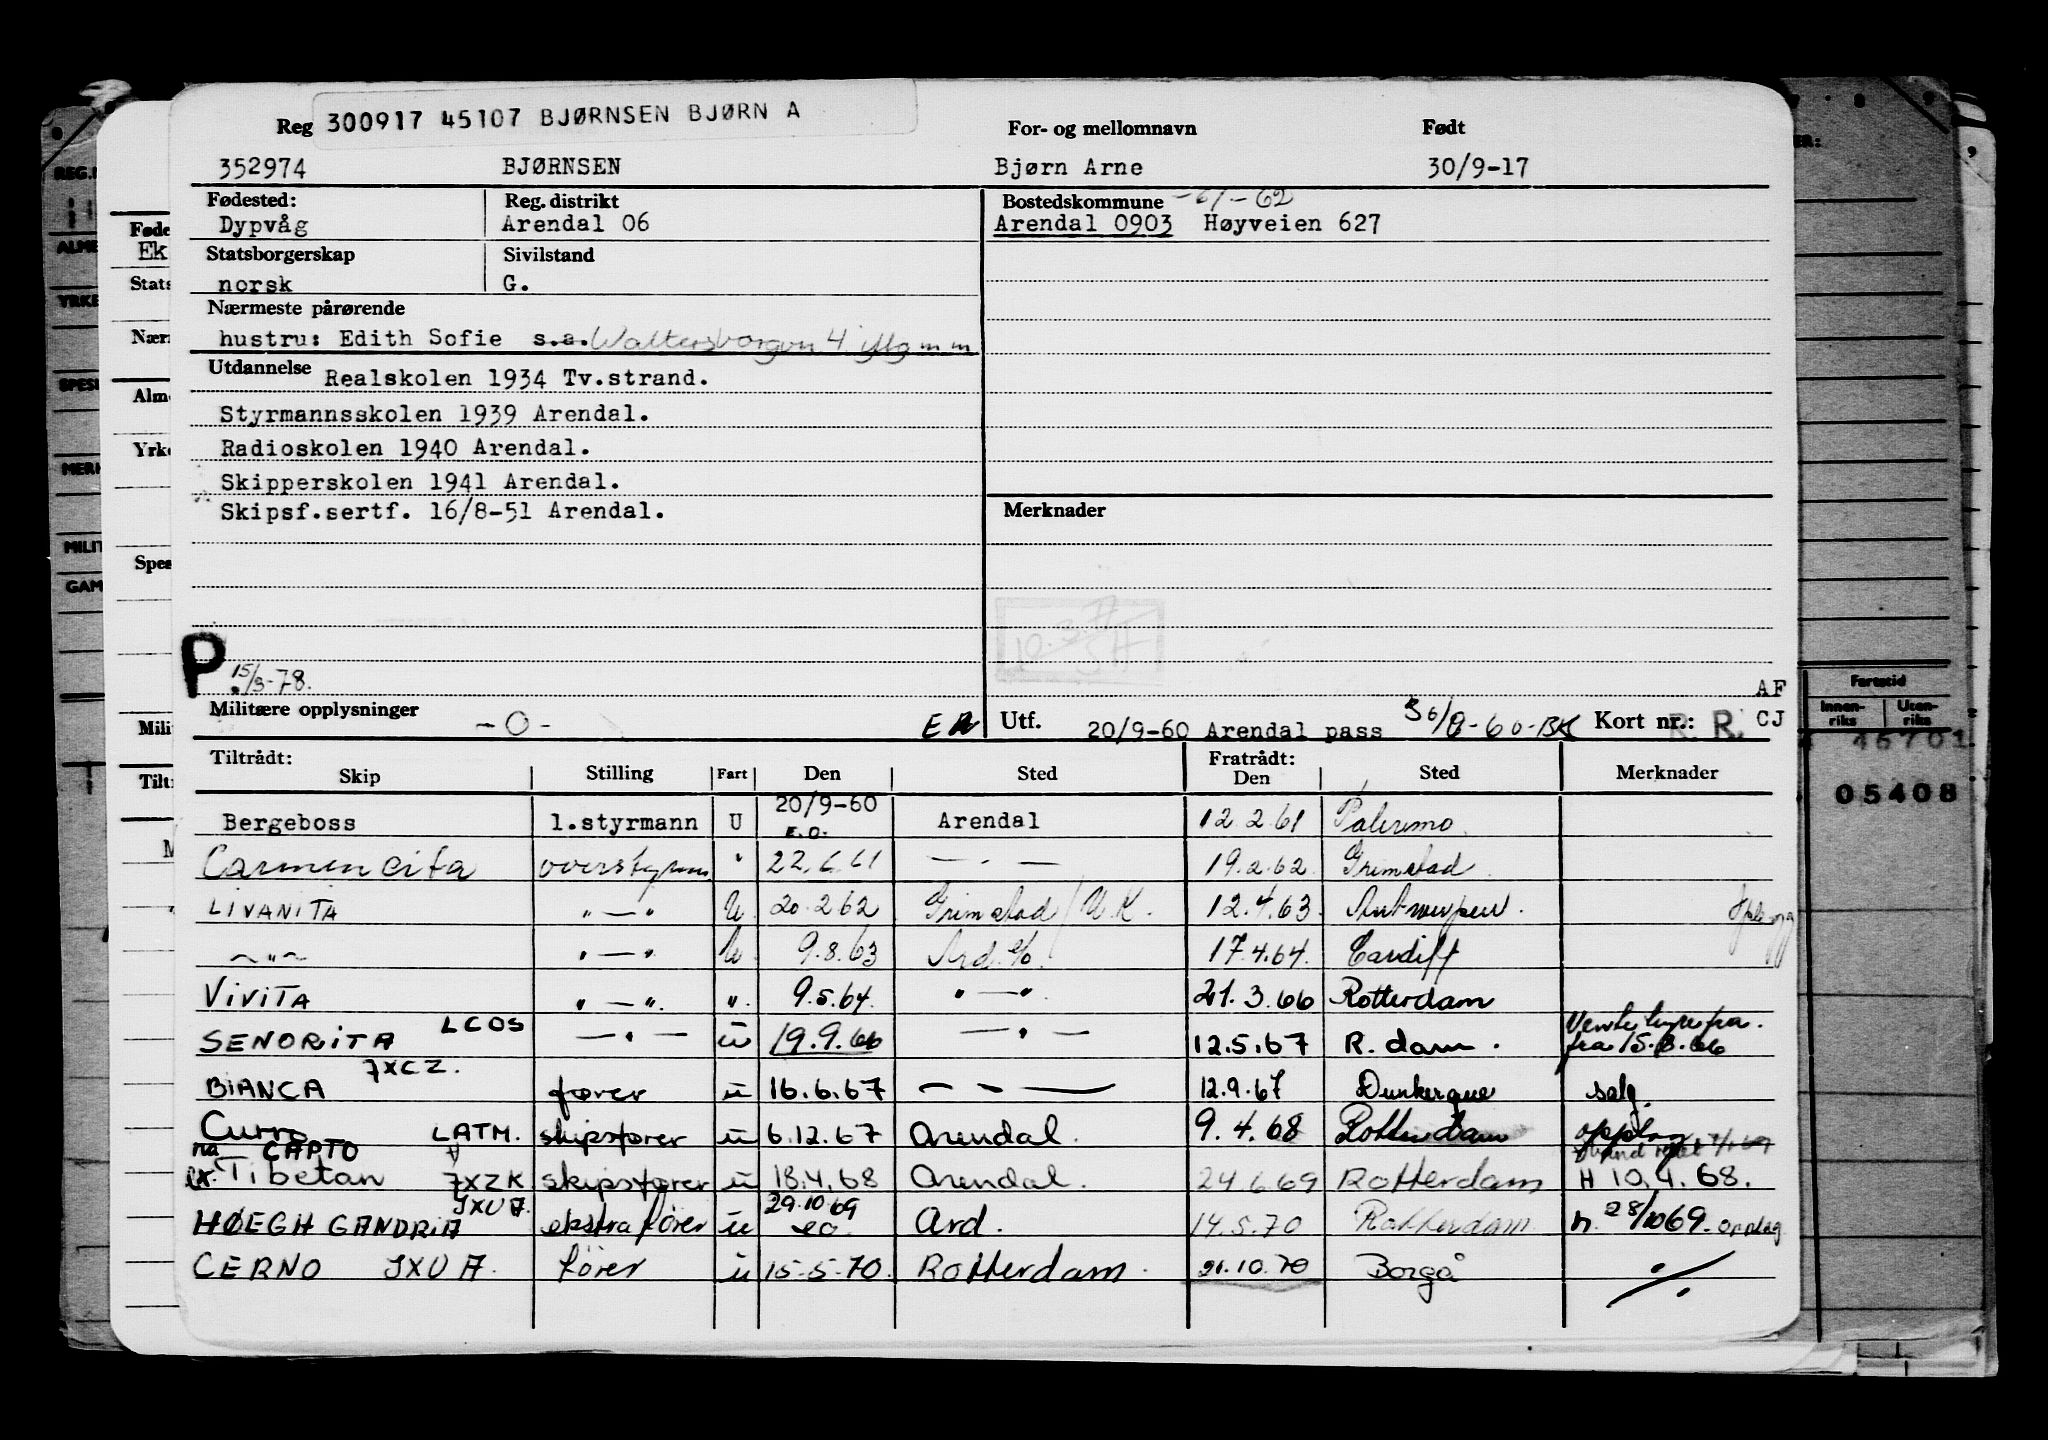 Reg 300917 45107 BJØRNSEN BJØRN A For- og mellomnavn Født
352974 BJØRNSEN Bjørn Arne 30/9-17
Fødested: Reg. distrikt Bostedskommune -6/-62
Dypvåg Arendal 06 Arendal 0903 Høyveien 627
Statsborgerskap Sivilstand
norsk G.
Nærmeste pårørende
hustru: Edith Sofie s.a.
Utdannelse Realskolen 1934 Tv.strand.
Styrmannsskolen 1939 Arendal.
Radioskolen 1940 Arendal.
Skipperskolen 1941 Arendal.
Skipsf.sertf. 16/8-51 Arendal. Merknader
P 15/3-78.
AF
Militære opplysninger -0- Utf. 20/9-60 Arendal pass 30/9-60-BK Kort nr.: R. R. CJ
Tiltrådt: Fratrådt:
Skip Stilling Fart Den Sted Den Sted Merknader
Bergeboss 1.styrmann U 20/9-60 E.O. Arendal 12.2.61 Palermo
Carmencita overstyrm. " 22.6.61 — " — 19.2.62 Grimstad
LIVANITA " — " U 20.2.62 Grimstad / U.K. 12.4.63 Antwerpen.
— " — " — " U 9.8.63 Ard. 17.4.64. Cardiff
VIVITA " — ". ". 9.5.64. " — ". 21.3.66 Rotterdam
SENORITA LCOS — " — u 19.9.66 — " — 12.5.67 R. dam. fra 15.8.66
BIANCA JXCZ. fører u 16.6.67 — " — 12.9.67 Dunkerque salg.
Curro LATM. skipsfører u 6.12.67 Arendal. 9.4.68 Rotterdam opplag
nå CAPTO
ex. Tibetan JXZK skipsfører u 18.4.68 Arendal. 24.6.69 Rotterdam H 10.4.68.
HØEGH GANDRIA JXUA. ekstra fører u 29.10.69 eo. Ard. 14.5.70 Rotterdam h. 28/10 69. opplag
CERNO JXUA. fører u 15-5-70. Rotterdam. 21.10.70 Borgå
REG.N
ALME
YRKE
SPESI
MERK
MILIT
GAM
Føde
Ek
Stats
Nærm
Alme
Yrke
Spes
Milit
Tiltr
Fartstid
Innen-
riks
Uten-
riks
46701
05408